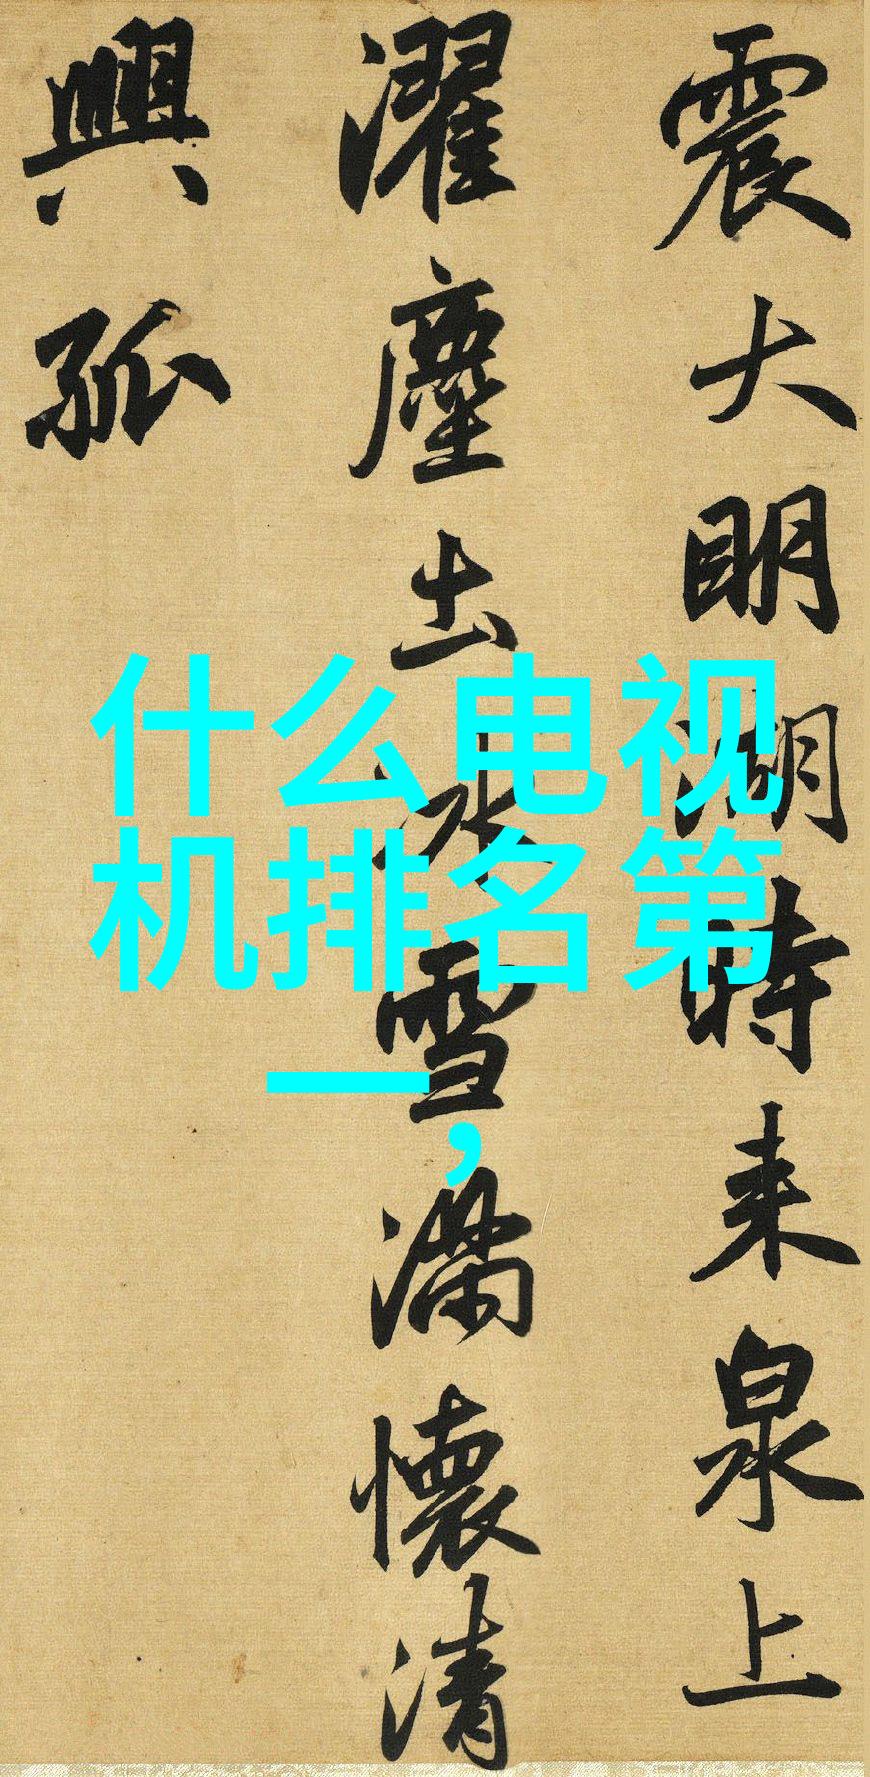 震大明湖時来泉上
濯塵土冰雪滿懷清
興孤
什么电视
机排名第
一，